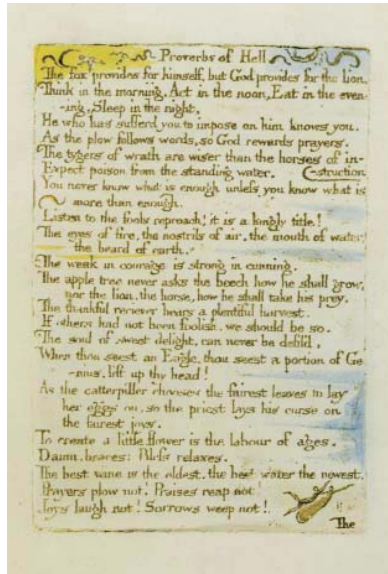 Proverbs of Hell
The fox provides for himself, but God provides for the lion.
Think in the morning, Act in the noon, Eat in the even-
-ing, Sleep in the night,
He who has sufferd you to impose on him knows you.
As the plow follows words, so God rewards prayers.
The tygers of wrath are wiser than the horses of in-
Expect poison from the standing water. -struction
You never know what is enough unless you know what is
more than enough.
Listen to the fools reproach! it is a kingly title!
The eyes of fire, the nostrils of air, the mouth of water,
the beard of earth.
The weak in courage is strong in cunning.
The apple tree never asks the beech how he shall grow,
nor the lion, the horse, how he shall take his prey.
The thankful reciever bears a plentiful harvest.
If others had not been foolish, we should be so.
The soul of sweet delight, can never be defil'd,
When thou seest an Eagle, thou seest a portion of Ge
-nius, lift up thy head!
As the catterpiller chooses the fairest leaves to lay
her eggs on, so the priest lays his curse on
the fairest joys.
To create a little flower is the labour of ages.
Damn, braces: Bless relaxes.
The best wine is the oldest, the best water the newest.
Prayers plow not! Praises reap not!
Joys laugh not! Sorrows weep not!
The